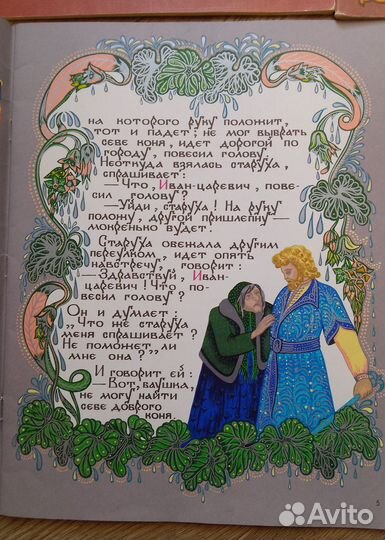 на которого руку положит,
тот и падет; не мог выбрать
себе коня, идет дорогой по
городу, повесил голову.
Неоткуда взялась старуха,
спрашивает:
— Что, Иван-царевич, пове-
сил голову?
— Уйди, старуха! На руку
положу, другой пришлепну —
мокренько будет!
Старуха обежала другим
переулком, идет опять
навстречу, говорит:
— Здравствуй, Иван-
царевич! Что по-
весил голову?
Он и думает:
„Что же старуха
меня спрашивает?
Не поможет ли
мне она?"
И говорит ей:
— Вот, баушка,
не могу найти
себе доброго
коня.
5
Avito